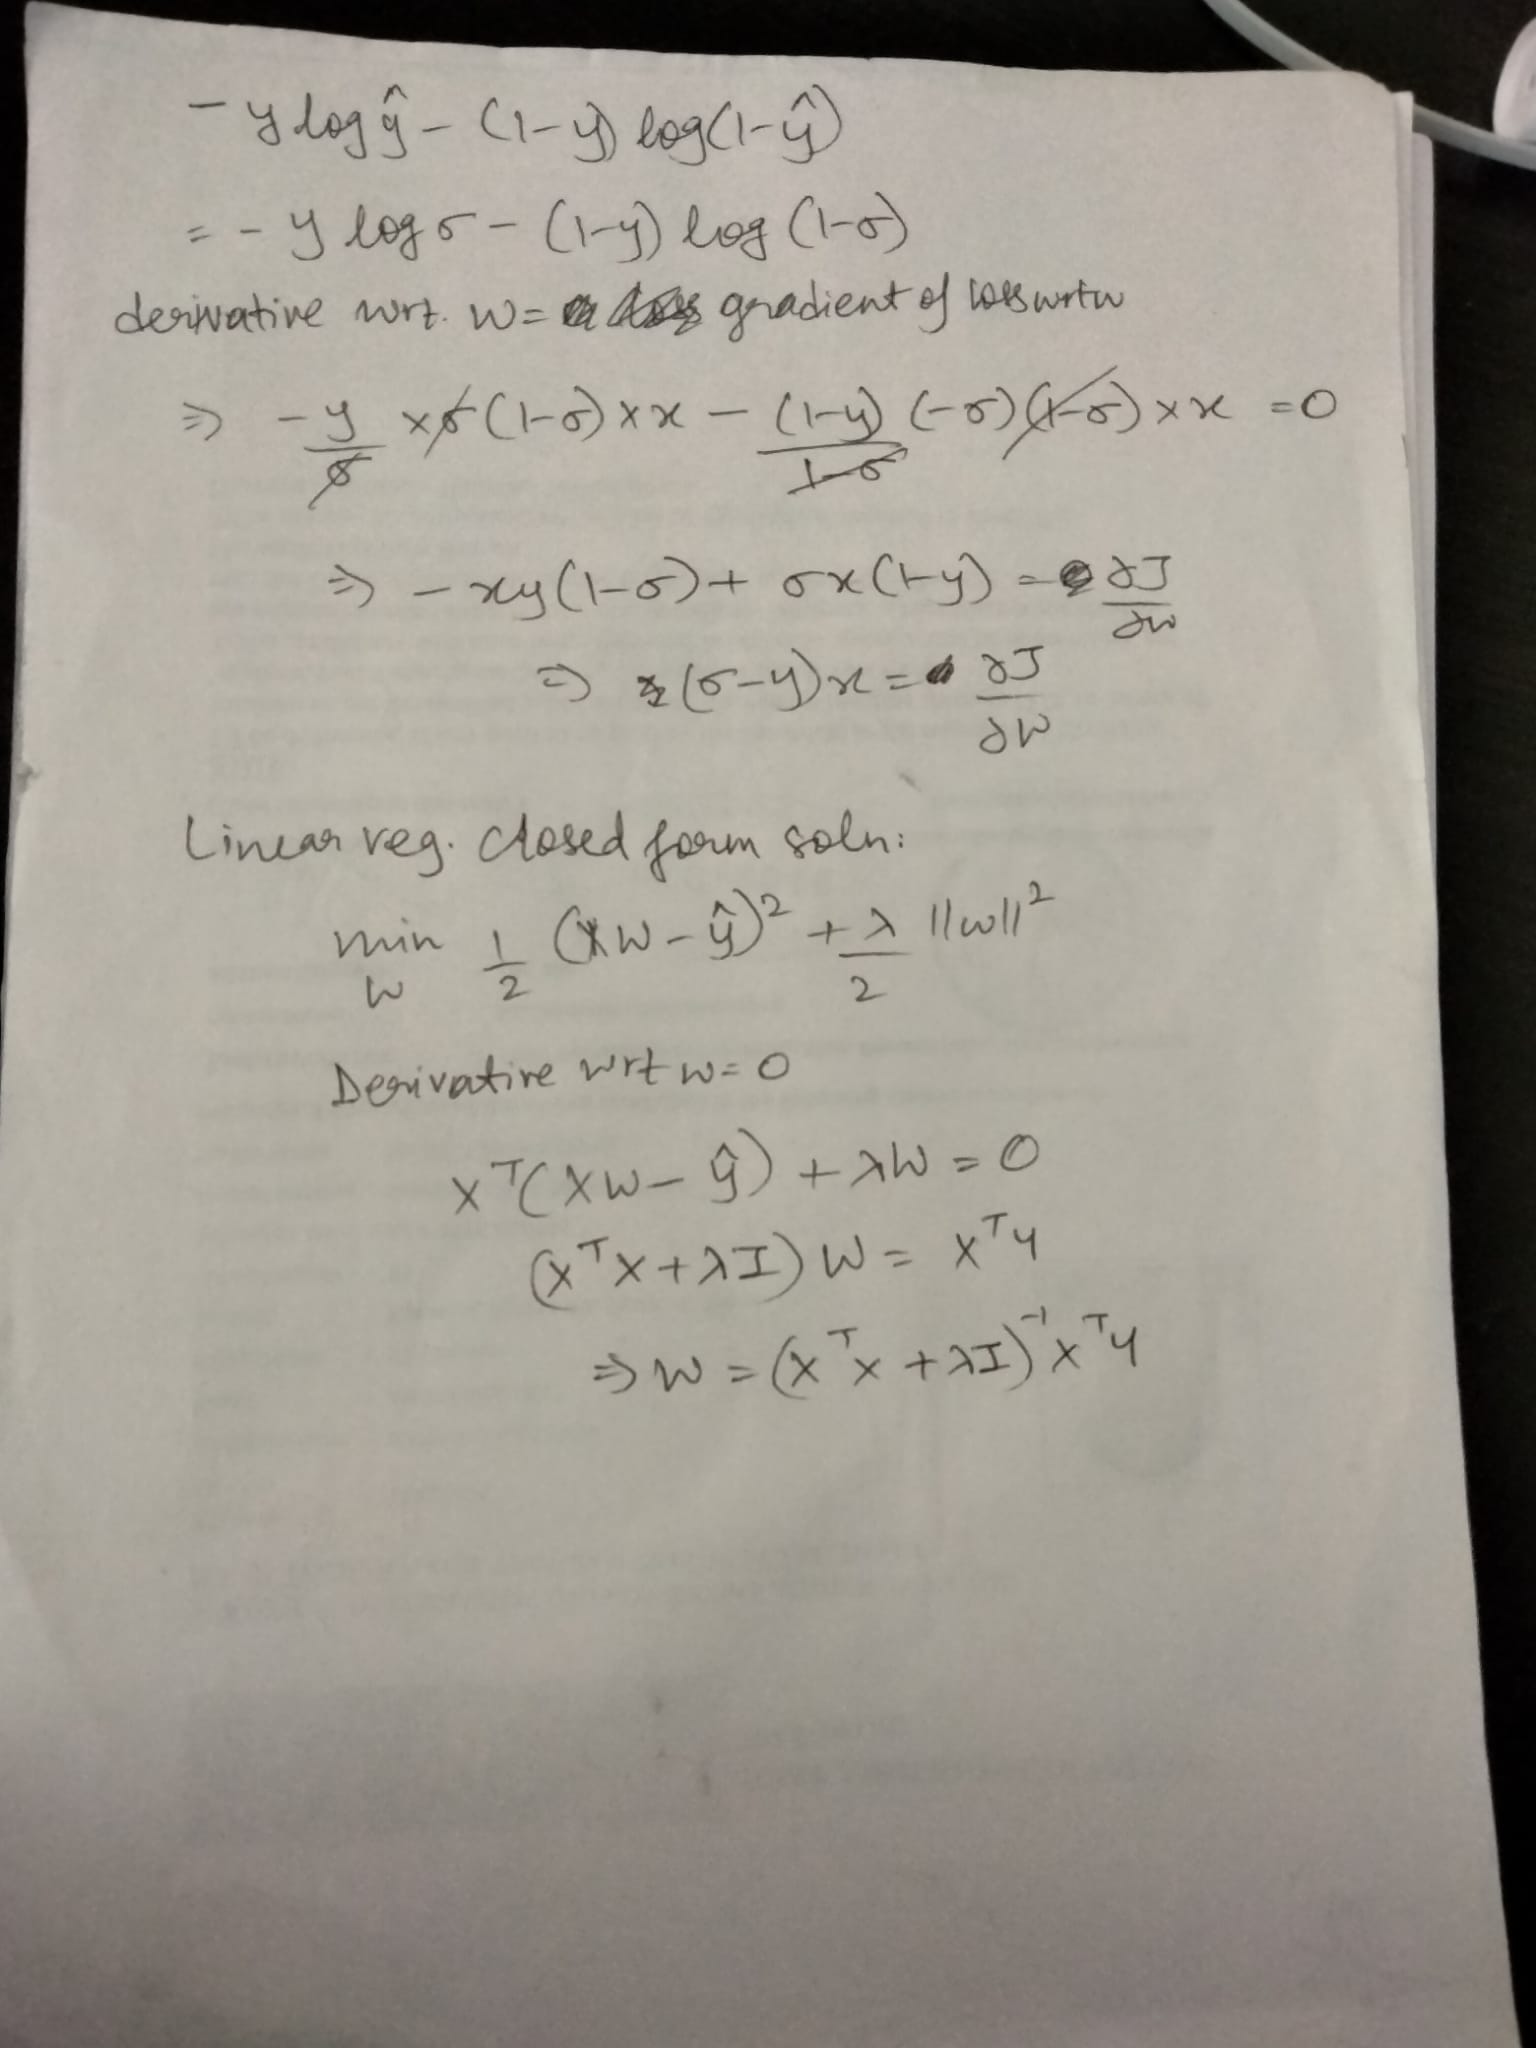 - y log ŷ - (1-y) log(1-ŷ)
= - y log σ - (1-y) log (1-σ)
derivative wrt. w = gradient of loss wrt w
⇒ -y/σ × σ(1-σ) × x - (1-y)/(1-σ) (-σ)(1-σ) × x = 0
⇒ - xy(1-σ) + σx(1-y) = ∂J/∂w
⇒ (σ-y)x = ∂J/∂w
Linear reg. closed form soln:
min_w 1/2 (Xw - ŷ)² + λ/2 ||w||²
Derivative wrt w = 0
X^T(Xw - ŷ) + λw = 0
(X^T X + λI) w = X^T y
⇒ w = (X^T X + λI)^-1 X^T y